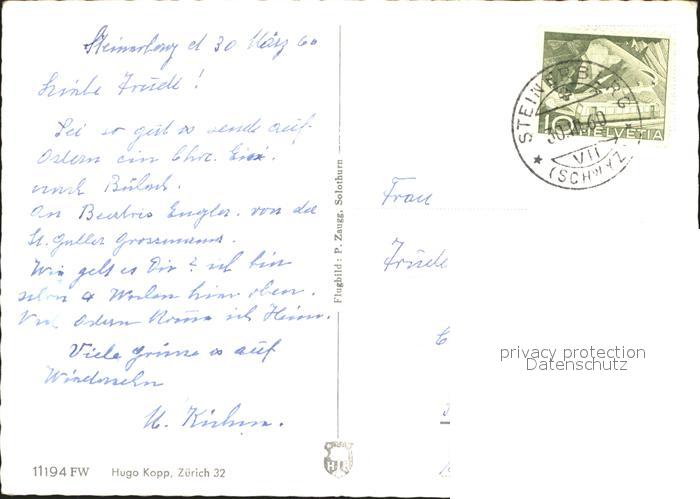 Steinerberg d 30 März 60
Trudi !
Sei so gut & sende auf
Ostern ein Choc.
nach Bülach.
An Beatrix Engler. von der
St. Galler Grossmama.
Wie geht es Dir? ich bin
schon 4 Wochen hier oben.
Ostern komm ich Heim.
Viele Grüsse & auf
Wiedersehn
Frau
Trudi
Flugbild: P. Zaugg, Solothurn
11194 FW Hugo Kopp, Zürich 32
HK
10 HELVETIA
STEINERBERG
30.III.60
VII
(SCHWYZ)
privacy protection
Datenschutz